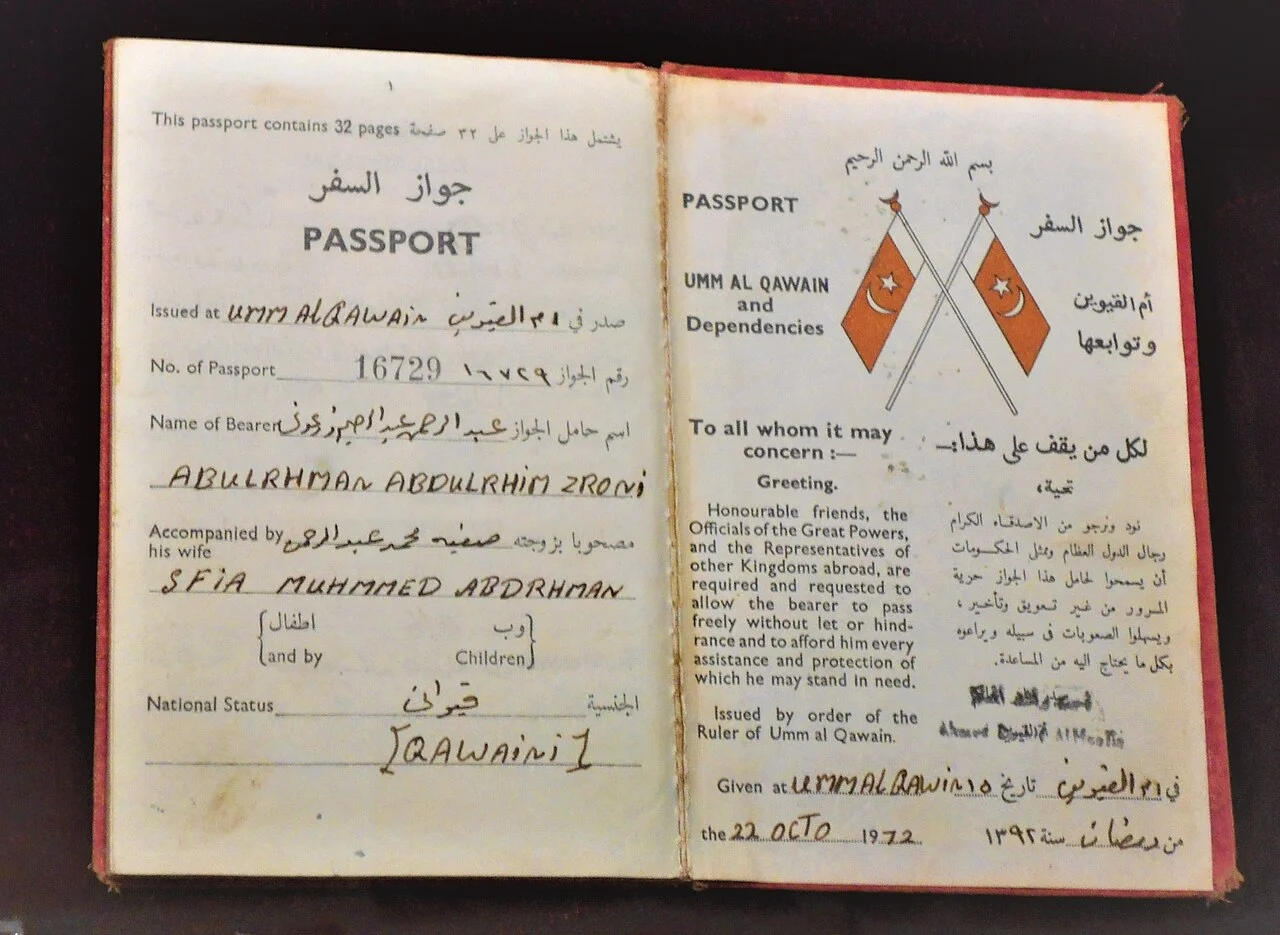 ١
This passport contains 32 pages يشتمل هذا الجواز على ٣٢ صفحة
جواز السفر
PASSPORT
Issued at UMM ALQAWAIN ام القيوين صدر في
No. of Passport 16729 ١٦٧٢٩ رقم الجواز
Name of Bearer عبد الرحمن عبد الرحيم زرعوني اسم حامل الجواز
ABULRHMAN ABDULRHIM ZRONI
Accompanied by his wife صفيه محمد عبد الرحمن مصحوبا بزوجته
SFIA MUHMMED ABDRHMAN
وب اطفال
and by Children
National Status قيواني الجنسية
[QAWAINI]
بسم الله الرحمن الرحيم
PASSPORT جواز السفر
UMM AL QAWAIN
and
Dependencies
أم القيوين
وتوابعها
To all whom it may
concern :—
Greeting.
Honourable friends, the
Officials of the Great Powers,
and the Representatives of
other Kingdoms abroad, are
required and requested to
allow the bearer to pass
freely without let or hind-
rance and to afford him every
assistance and protection of
which he may stand in need.
Issued by order of the
Ruler of Umm al Qawain.
لكل من يقف على هذا:—
تحية،
نود ونرجو من الاصدقاء الكرام
رجال الدول العظام وممثل الحكومات
أن يسمحوا لحامل هذا الجواز حرية
المرور من غير تعويق وتأخير،
ويسهلوا الصعوبات في سبيله ويراعوه
بكل ما يحتاج اليه من المساعدة.
Ahmed
Given at UMMALQAWIN ١٥ تاريخ ام القيوين في
the 22 OCTO 1972 من رمضان سنة ١٣٩٢